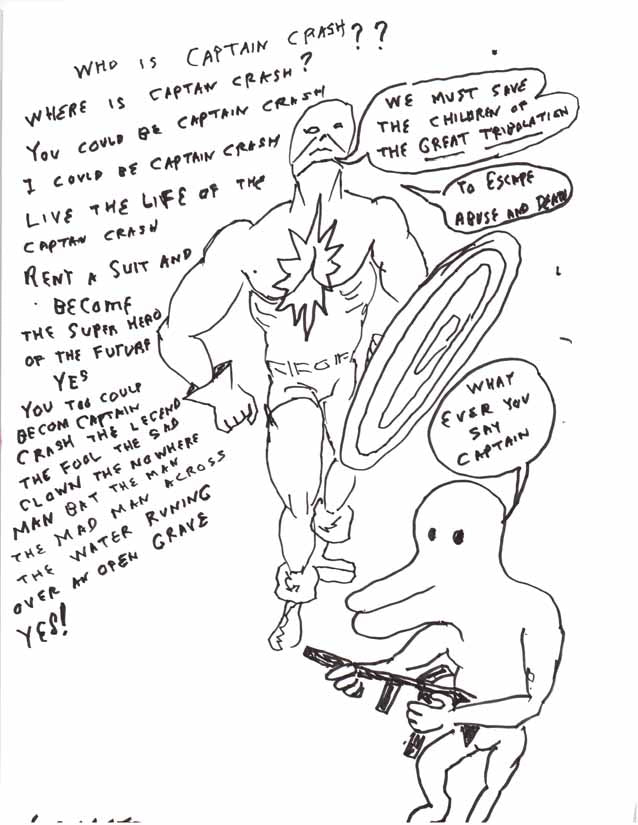 WHO IS CAPTAIN CRASH??
WHERE IS CAPTAN CRASH?
YOU COULD BE CAPTAIN CRASH
I COULD BE CAPTAIN CRASH
LIVE THE LIFE OF THE
CAPTAN CRASH
RENT A SUIT AND
BECOME
THE SUPER HERO
OF THE FUTURE
YES
YOU TOO COULD
BECOM CAPTAIN
CRASH THE LEGEND
THE FOOL THE SAD
CLOWN THE NOWHERE
MAN BAT THE MAN
THE MAD MAN ACROSS
THE WATER RUNING
OVER AN OPEN GRAVE
YES!
WE MUST SAVE
THE CHILDREN OF
THE GREAT TRIBULATION
TO ESCAPE
ABUSE AND DEATH
WHAT
EVER YOU
SAY
CAPTAIN